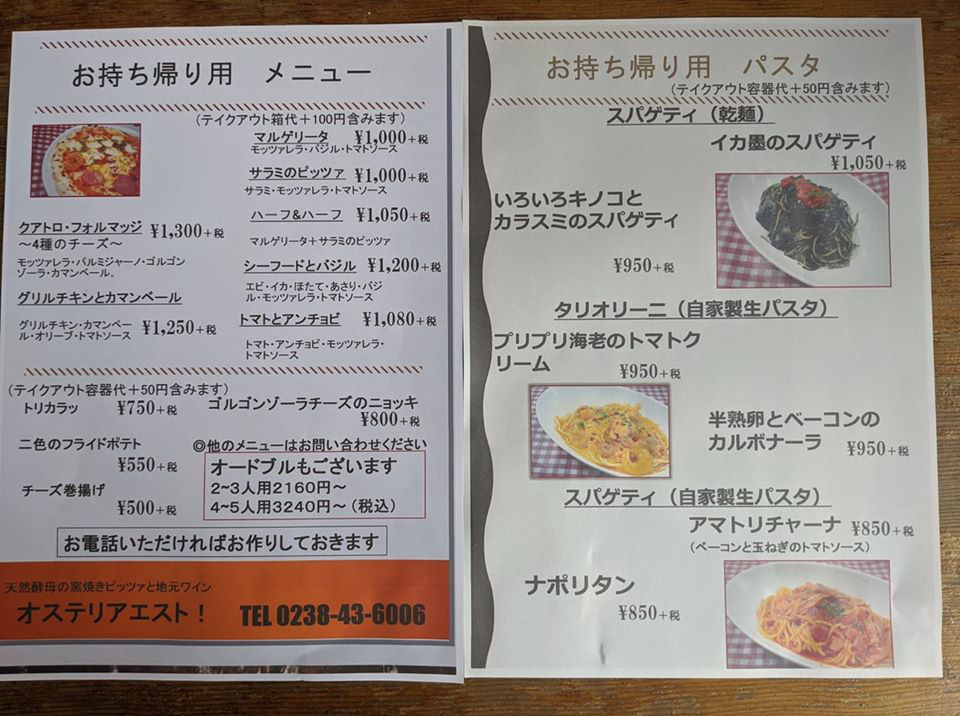 お持ち帰り用 メニュー
(テイクアウト箱代+100円含みます)
マルゲリータ ¥1,000+税
モッツァレラ・バジル・トマトソース
サラミのピッツァ ¥1,000+税
サラミ・モッツァレラ・トマトソース
ハーフ&ハーフ ¥1,050+税
マルゲリータ+サラミのピッツァ
クアトロ・フォルマッジ ¥1,300+税
～4種のチーズ～
モッツァレラ・パルミジャーノ・ゴルゴン
ゾーラ・カマンベール。
シーフードとバジル ¥1,200+税
エビ・イカ・ほたて・あさり・バジ
ル・モッツァレラ・トマトソース
グリルチキンとカマンベール
グリルチキン・カマンベー
ル・オリーブ・トマトソース
¥1,250+税
トマトとアンチョビ ¥1,080+税
トマト・アンチョビ・モッツァレラ・
トマトソース
(テイクアウト容器代+50円含みます)
トリカラッ ¥750+税
二色のフライドポテト
¥550+税
チーズ巻揚げ
¥500+税
ゴルゴンゾーラチーズのニョッキ
¥800+税
◎他のメニューはお問い合わせください
オードブルもございます
2~3人用2160円～
4~5人用3240円～(税込)
お電話いただければお作りしておきます
天然酵母の窯焼きピッツァと地元ワイン
オステリアエスト！ TEL 0238-43-6006
お持ち帰り用 パスタ
(テイクアウト容器代+50円含みます)
スパゲティ(乾麺)
イカ墨のスパゲティ
¥1,050+税
いろいろキノコと
カラスミのスパゲティ
¥950+税
タリオリーニ(自家製生パスタ)
プリプリ海老のトマトク
リーム ¥950+税
半熟卵とベーコンの
カルボナーラ ¥950+税
スパゲティ(自家製生パスタ)
アマトリチャーナ ¥850+税
(ベーコンと玉ねぎのトマトソース)
ナポリタン
¥850+税